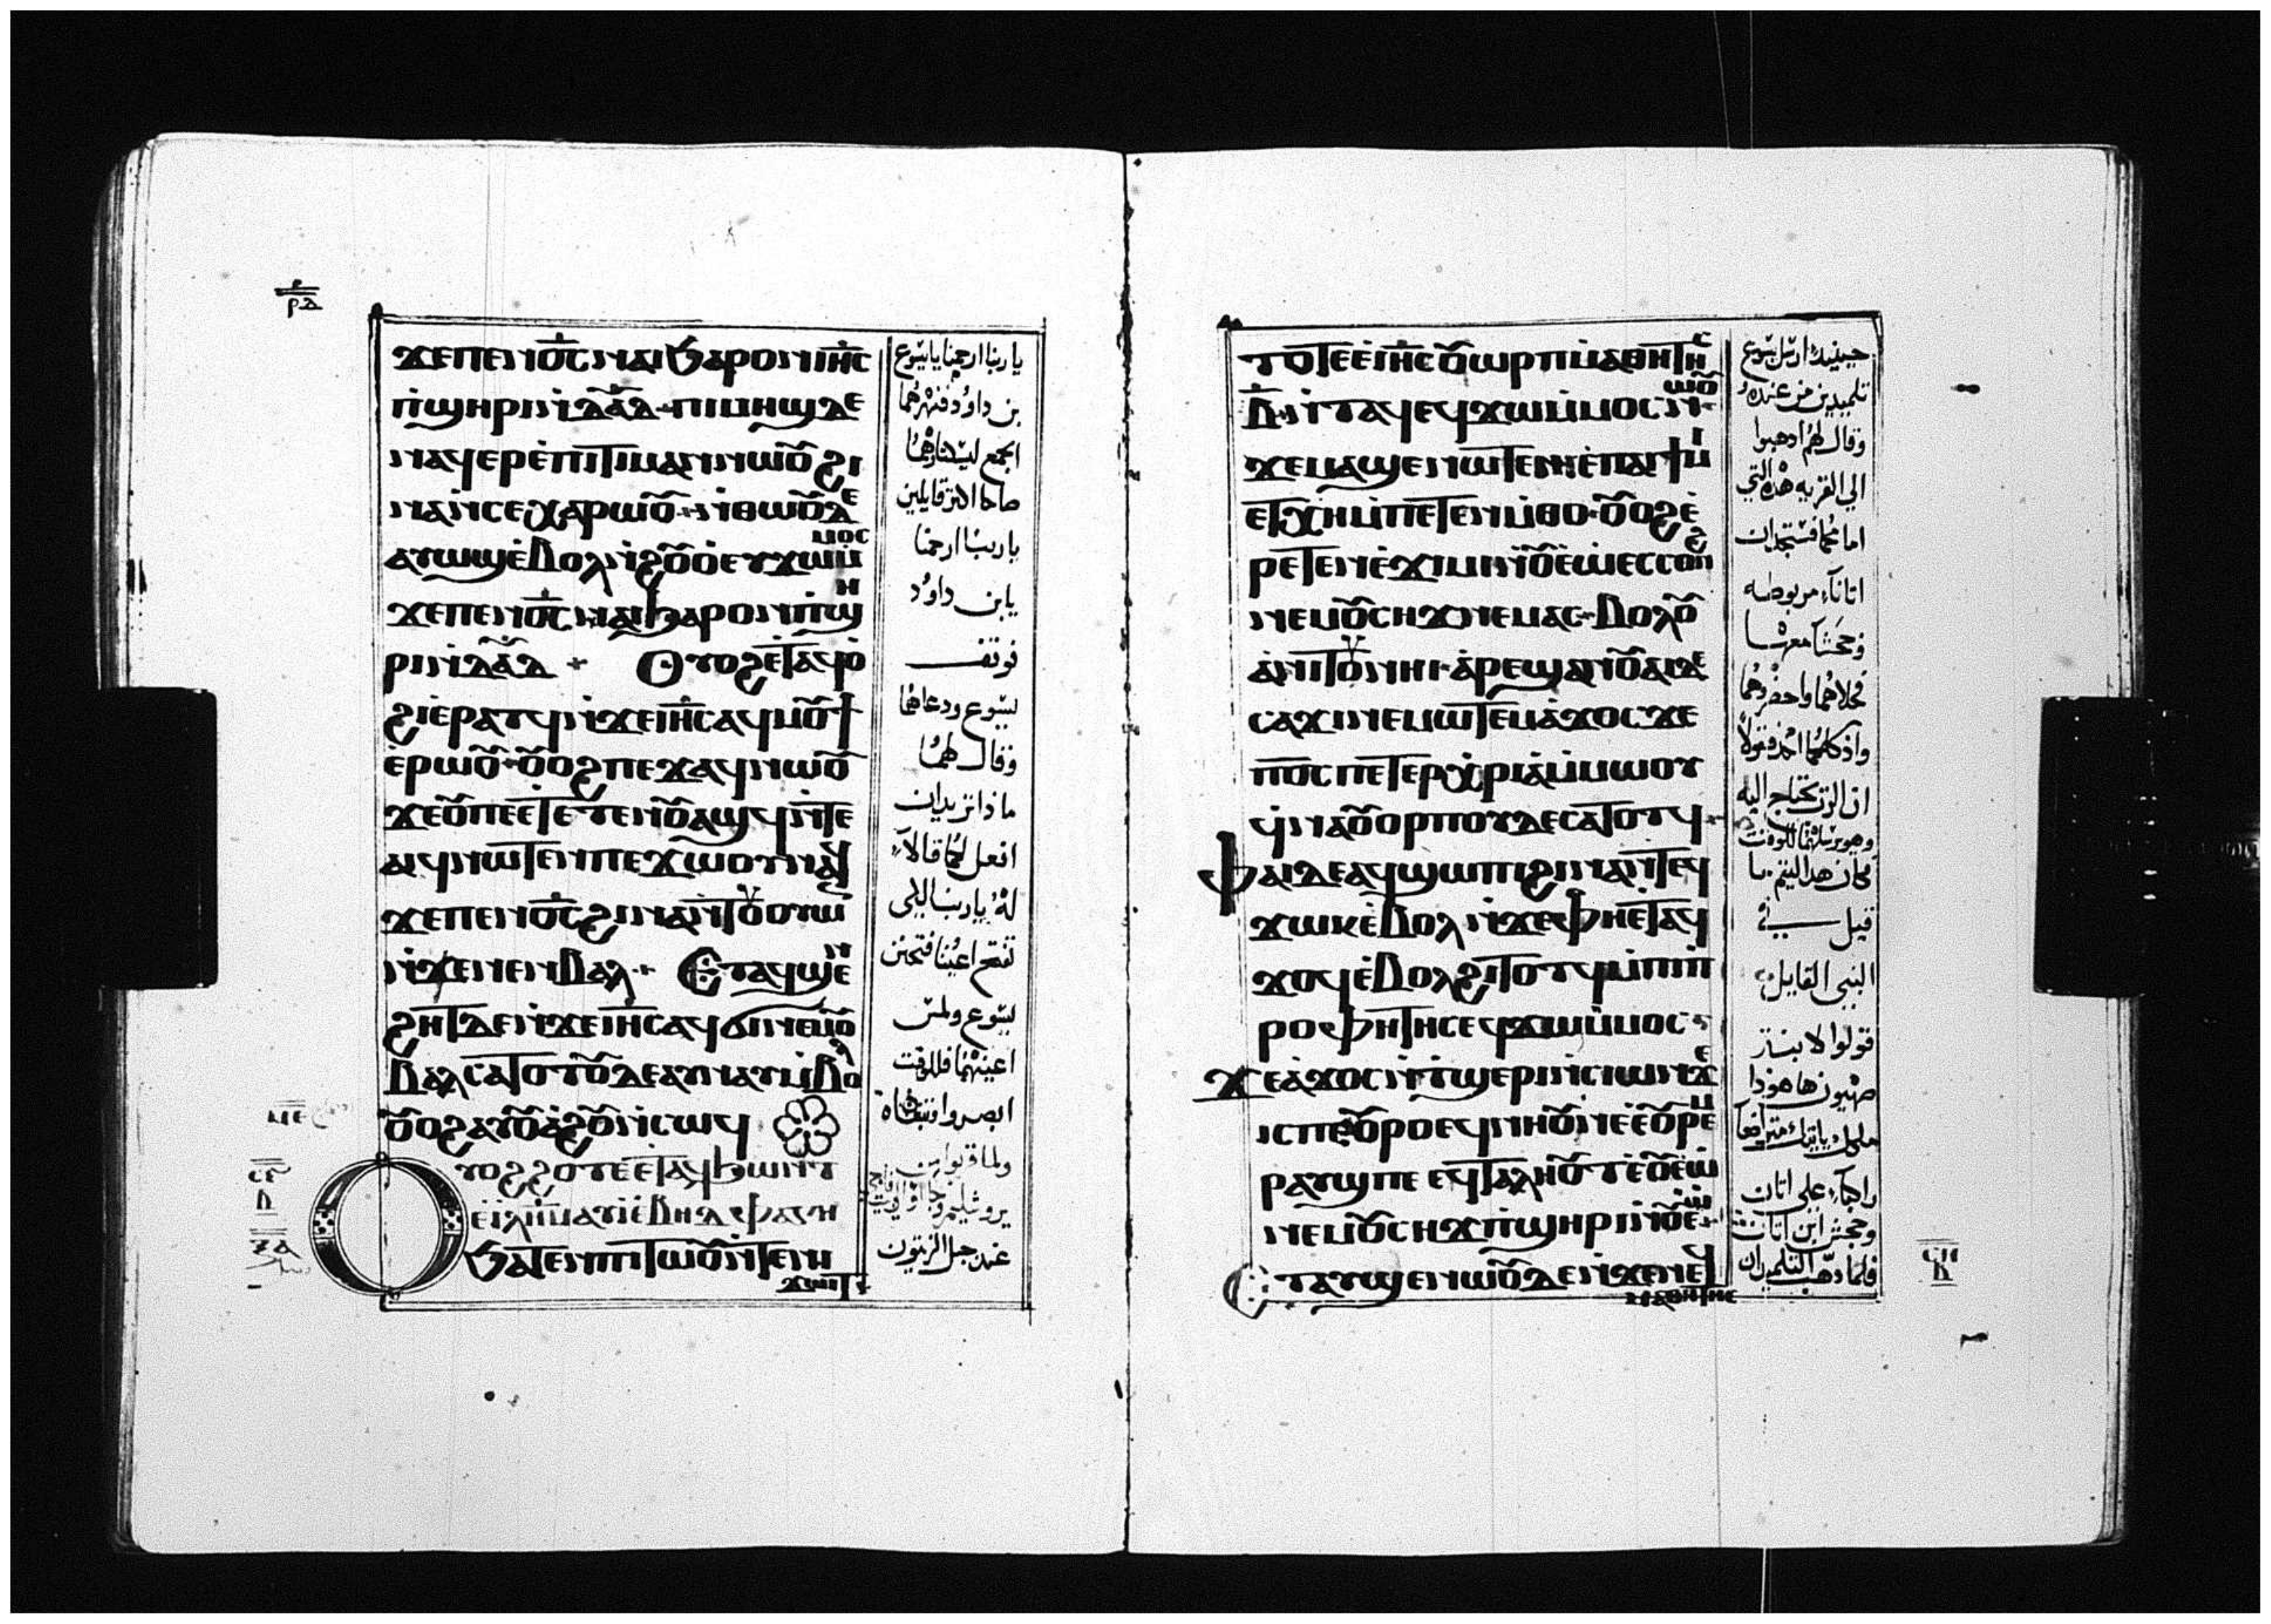 ϫⲉⲡⲉⲛⲟ̅ⲥ̅ⲛⲁⲓϧⲁⲣⲟⲛⲓⲏ̅ⲥ̅
ⲡ̀ϣⲏⲣⲓⲛ̀ⲇⲁ̅ⲇ̅ ⲡⲓⲙⲏϣⲇⲉ
ⲛⲁϥⲉⲣⲉ̀ⲡⲓⲧⲓⲙⲁⲛⲛⲱⲟⲩϩⲓ
ⲛⲁⲛ̀ⲥⲉⲭⲁⲣⲱⲟⲩ ⲛ̀ⲑⲱⲟⲩⲇⲉ
ⲁⲩⲱϣⲉ̀ⲃⲟⲗⲛ̀ϩⲟⲩⲟ̀ⲉⲩϫⲱⲙ̀ⲙⲟⲥ
ϫⲉⲡⲉⲛⲟ̅ⲥ̅ⲛⲁⲓϧⲁⲣⲟⲛⲡ̀ϣⲏ
ⲣⲓⲛ̀ⲇⲁ̅ⲇ̅ Ⲟⲩⲟϩⲉ̀ⲧⲁϥⲟ̀
ϩⲓⲉ̀ⲣⲁⲧϥⲛ̀ϫⲉⲓⲏ̅ⲥ̅ⲁϥⲙⲟⲩϯ
ⲉ̀ⲣⲱⲟⲩ ⲟⲩⲟϩⲡⲉϫⲁϥⲛⲱⲟⲩ
ϫⲉⲟⲩⲡⲉⲉ̀ⲧⲉⲧⲉⲛⲟⲩⲁϣϥⲛ̀ⲧⲉ
ⲁⲓϥⲛⲱⲧⲉⲛⲡⲉϫⲱⲟⲩⲛⲁϥ
ϫⲉⲡⲉⲛⲟ̅ⲥ̅ϩⲓⲛⲁⲛ̀ⲧⲟⲩⲟⲩⲱⲛ
ⲛ̀ϫⲉⲛⲉⲛⲃⲁⲗ Ⲉⲧⲁϥϣⲉⲛ
ϩⲏⲧⲇⲉⲛ̀ϫⲉⲓⲏ̅ⲥ̅ⲁϥϭⲓⲛⲉⲙⲟⲩ
ⲃⲁⲗⲥⲁⲧⲟⲧⲟⲩⲇⲉⲁⲩⲛⲁⲩⲙ̀ⲃⲟⲗ
ⲟⲩⲟϩⲁⲩⲟⲩⲁ̀ϩⲟⲩⲛ̀ⲥⲱϥ
Ⲟⲩⲟϩϩⲟⲧⲉⲉ̀ⲧⲁϥϧⲱⲛⲧ
ⲉⲓ̀ⲗⲏ̅ⲙ̅ⲁⲩⲓ̀ⲉ̀ⲃⲏⲑⲫⲁⲅⲏ
ϧⲁⲧⲉⲛⲡⲓⲧⲱⲟⲩⲛ̀ⲧⲉⲛⲓ
ϫⲱⲓⲧ
يا ربنا ارحمنا يا يسوع
بن داوُد فنهرهما
الجمع ليسكتاهما
صاحا اكثر قايلين
يا ربنا ارحمنا
يا بن داوُد
فوقف
يسوع ودعاهما
وقال لهما
ماذا تريدان
افعل لكما قالا
لهُ يا ربنا لكي
تفتح اعيننا فتحنن
يسوع ولمس
اعينهما فللوقت
ابصروا وتبعاه
ولما قربوا من
عند جبل الزيتون
ⲣⲇ
ⲙⲉ
ⲥⲉ
ⲃ
ⲧⲟⲧⲉⲉ̀ⲓⲏ̅ⲥ̅ⲟⲩⲱⲣⲡⲙ̀ⲙⲁⲑⲏⲧⲏⲥ
ⲃ̅ⲛ̀ⲧⲁϥⲉϥϫⲱⲙ̀ⲙⲟⲥⲛⲱⲟⲩ
ϫⲉⲙⲁϣⲉⲛⲱⲧⲉⲛⲉ̀ⲡⲁⲓϯⲙⲓ
ⲉⲧⲭⲏⲙ̀ⲡⲉⲧⲉⲛⲙ̀ⲑⲟ ⲟⲩⲟϩⲉ̀
ⲣⲉⲧⲉⲛⲉ̀ϫⲓⲙⲓⲛ̀ⲟⲩⲉ̀ⲱ̀ⲉⲥⲥⲟⲛϩ
ⲛⲉⲙⲟⲩⲥⲏϫⲛⲉⲙⲁⲥ ⲃⲟⲗⲟⲩ
ⲁ̀ⲛⲓⲧⲟⲩⲛⲏⲓ ⲁ̀ⲣⲉϣⲁⲛⲟⲩⲁⲓⲇⲉ
ⲥⲁϫⲓⲛⲉⲙⲱⲧⲉⲛⲁ̀ϫⲟⲥϫⲉ
ⲡⲟ̅ⲥ̅ⲡⲉⲧⲉⲣⲭⲣⲓⲁ̀ⲙ̀ⲙⲱⲟⲩ
ϥ̀ⲛⲁⲟⲩⲟⲣⲡⲟⲩⲇⲉⲥⲁⲧⲟⲧϥ
Ⲫⲁⲓⲇⲉⲁϥϣⲱⲡⲓϩⲓⲛⲁⲛ̀ⲧⲉϥ
ϫⲱⲕⲉ̀ⲃⲟⲗⲛ̀ϫⲉⲫⲏⲉ̀ⲧⲁϥ
ϫⲟϥⲉ̀ⲃⲟⲗϩⲓⲧⲟⲧϥⲙ̀ⲡⲓⲡ̀
ⲣⲟⲫⲏⲧⲏⲥⲉϥϫⲱⲙ̀ⲙⲟⲥ
Ϫⲉⲁ̀ϫⲟⲥⲛ̀ⲧ̀ϣⲉⲣⲓⲛ̀ⲥⲓⲱⲛϫⲉ
ⲓⲥⲡⲉⲟⲩⲣⲟⲉϥⲛⲏⲟⲩⲛⲉⲉ̀ⲟⲩⲣⲉⲙ
ⲣⲁⲩϣⲡⲉⲉϥⲧⲁⲗⲏⲟⲩⲧⲉ̀ⲟⲩⲉ̀ⲱ̀
ⲛⲉⲙⲟⲩⲥⲏϫⲡ̀ϣⲏⲣⲓⲛ̀ⲟⲩⲉ̀ⲱ̀
Ⲉⲧⲁⲩϣⲉⲛⲱⲟⲩⲇⲉⲛ̀ϫⲉⲛⲉϥ
ⲙⲁⲑⲏⲧⲏⲥ
حينيذ ارسل يسوع
تلميدين من عنده
وقال لهم ادهبوا
الي القريه هذه التي
امامكما فستجدان
اتاناً مربوطه
وجحشا معها
فحلاهما واحضرهما
ان الرب يحتاج اليه
فيل في
النبي القايل
قولوا لابنة
صهيون هاهوذا
راكباً علي اتان
وجحش ابن اتان
فلما دهب التلميدان
ⲥⲏ
ⲃ